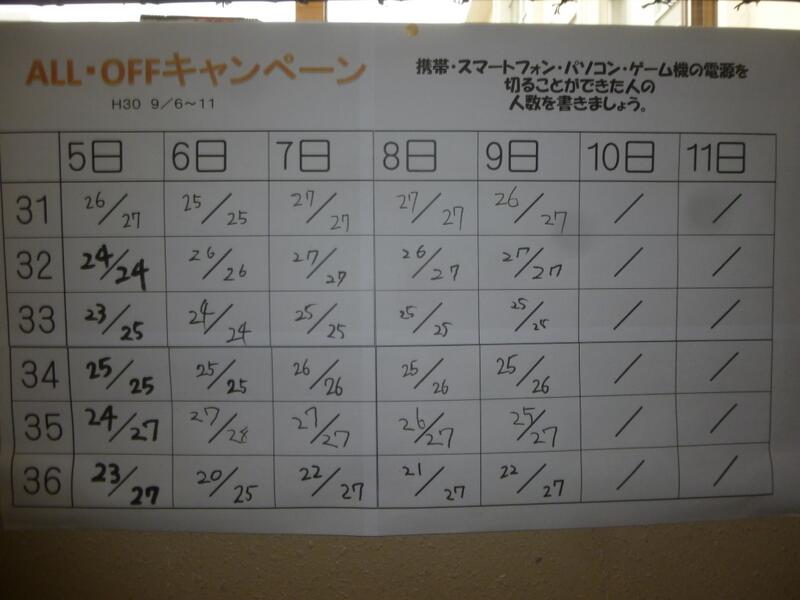 ALL・OFFキャンペーン
H30 9／6～11
携帯・スマートフォン・パソコン・ゲーム機の電源を
切ることができた人の
人数を書きましょう。
5日 6日 7日 8日 9日 10日 11日
31 26/27 25/25 27/27 27/27 26/27 / /
32 24/24 26/26 27/27 26/27 27/27 / /
33 23/25 24/24 25/25 25/25 25/25 / /
34 25/25 25/25 26/26 25/26 25/26 / /
35 24/27 27/28 27/27 26/27 25/27 / /
36 23/27 20/25 22/27 21/27 22/27 / /